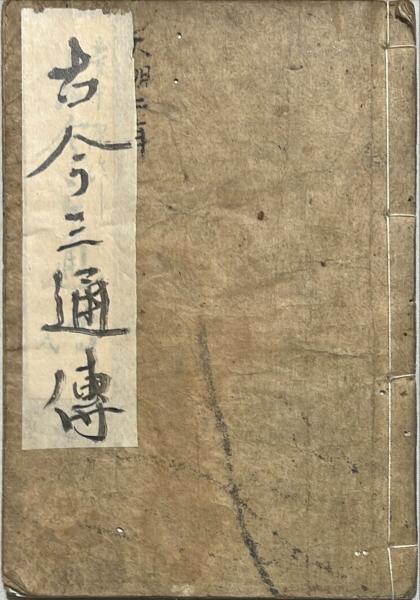 古今三通傳
天明二年